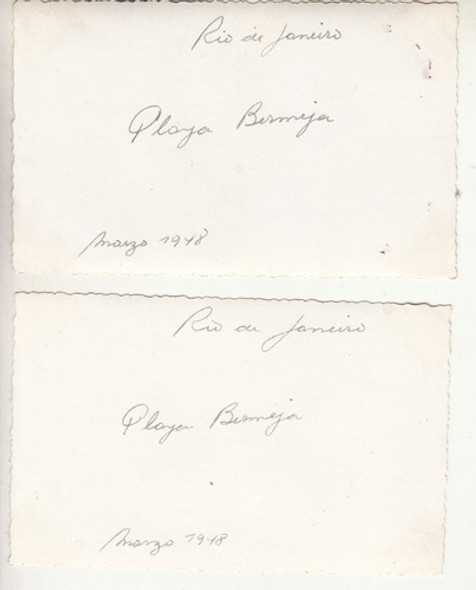 Rio de Janeiro
Playa Bermeja
Marzo 1948
Rio de Janeiro
Playa Bermeja
Marzo 1948